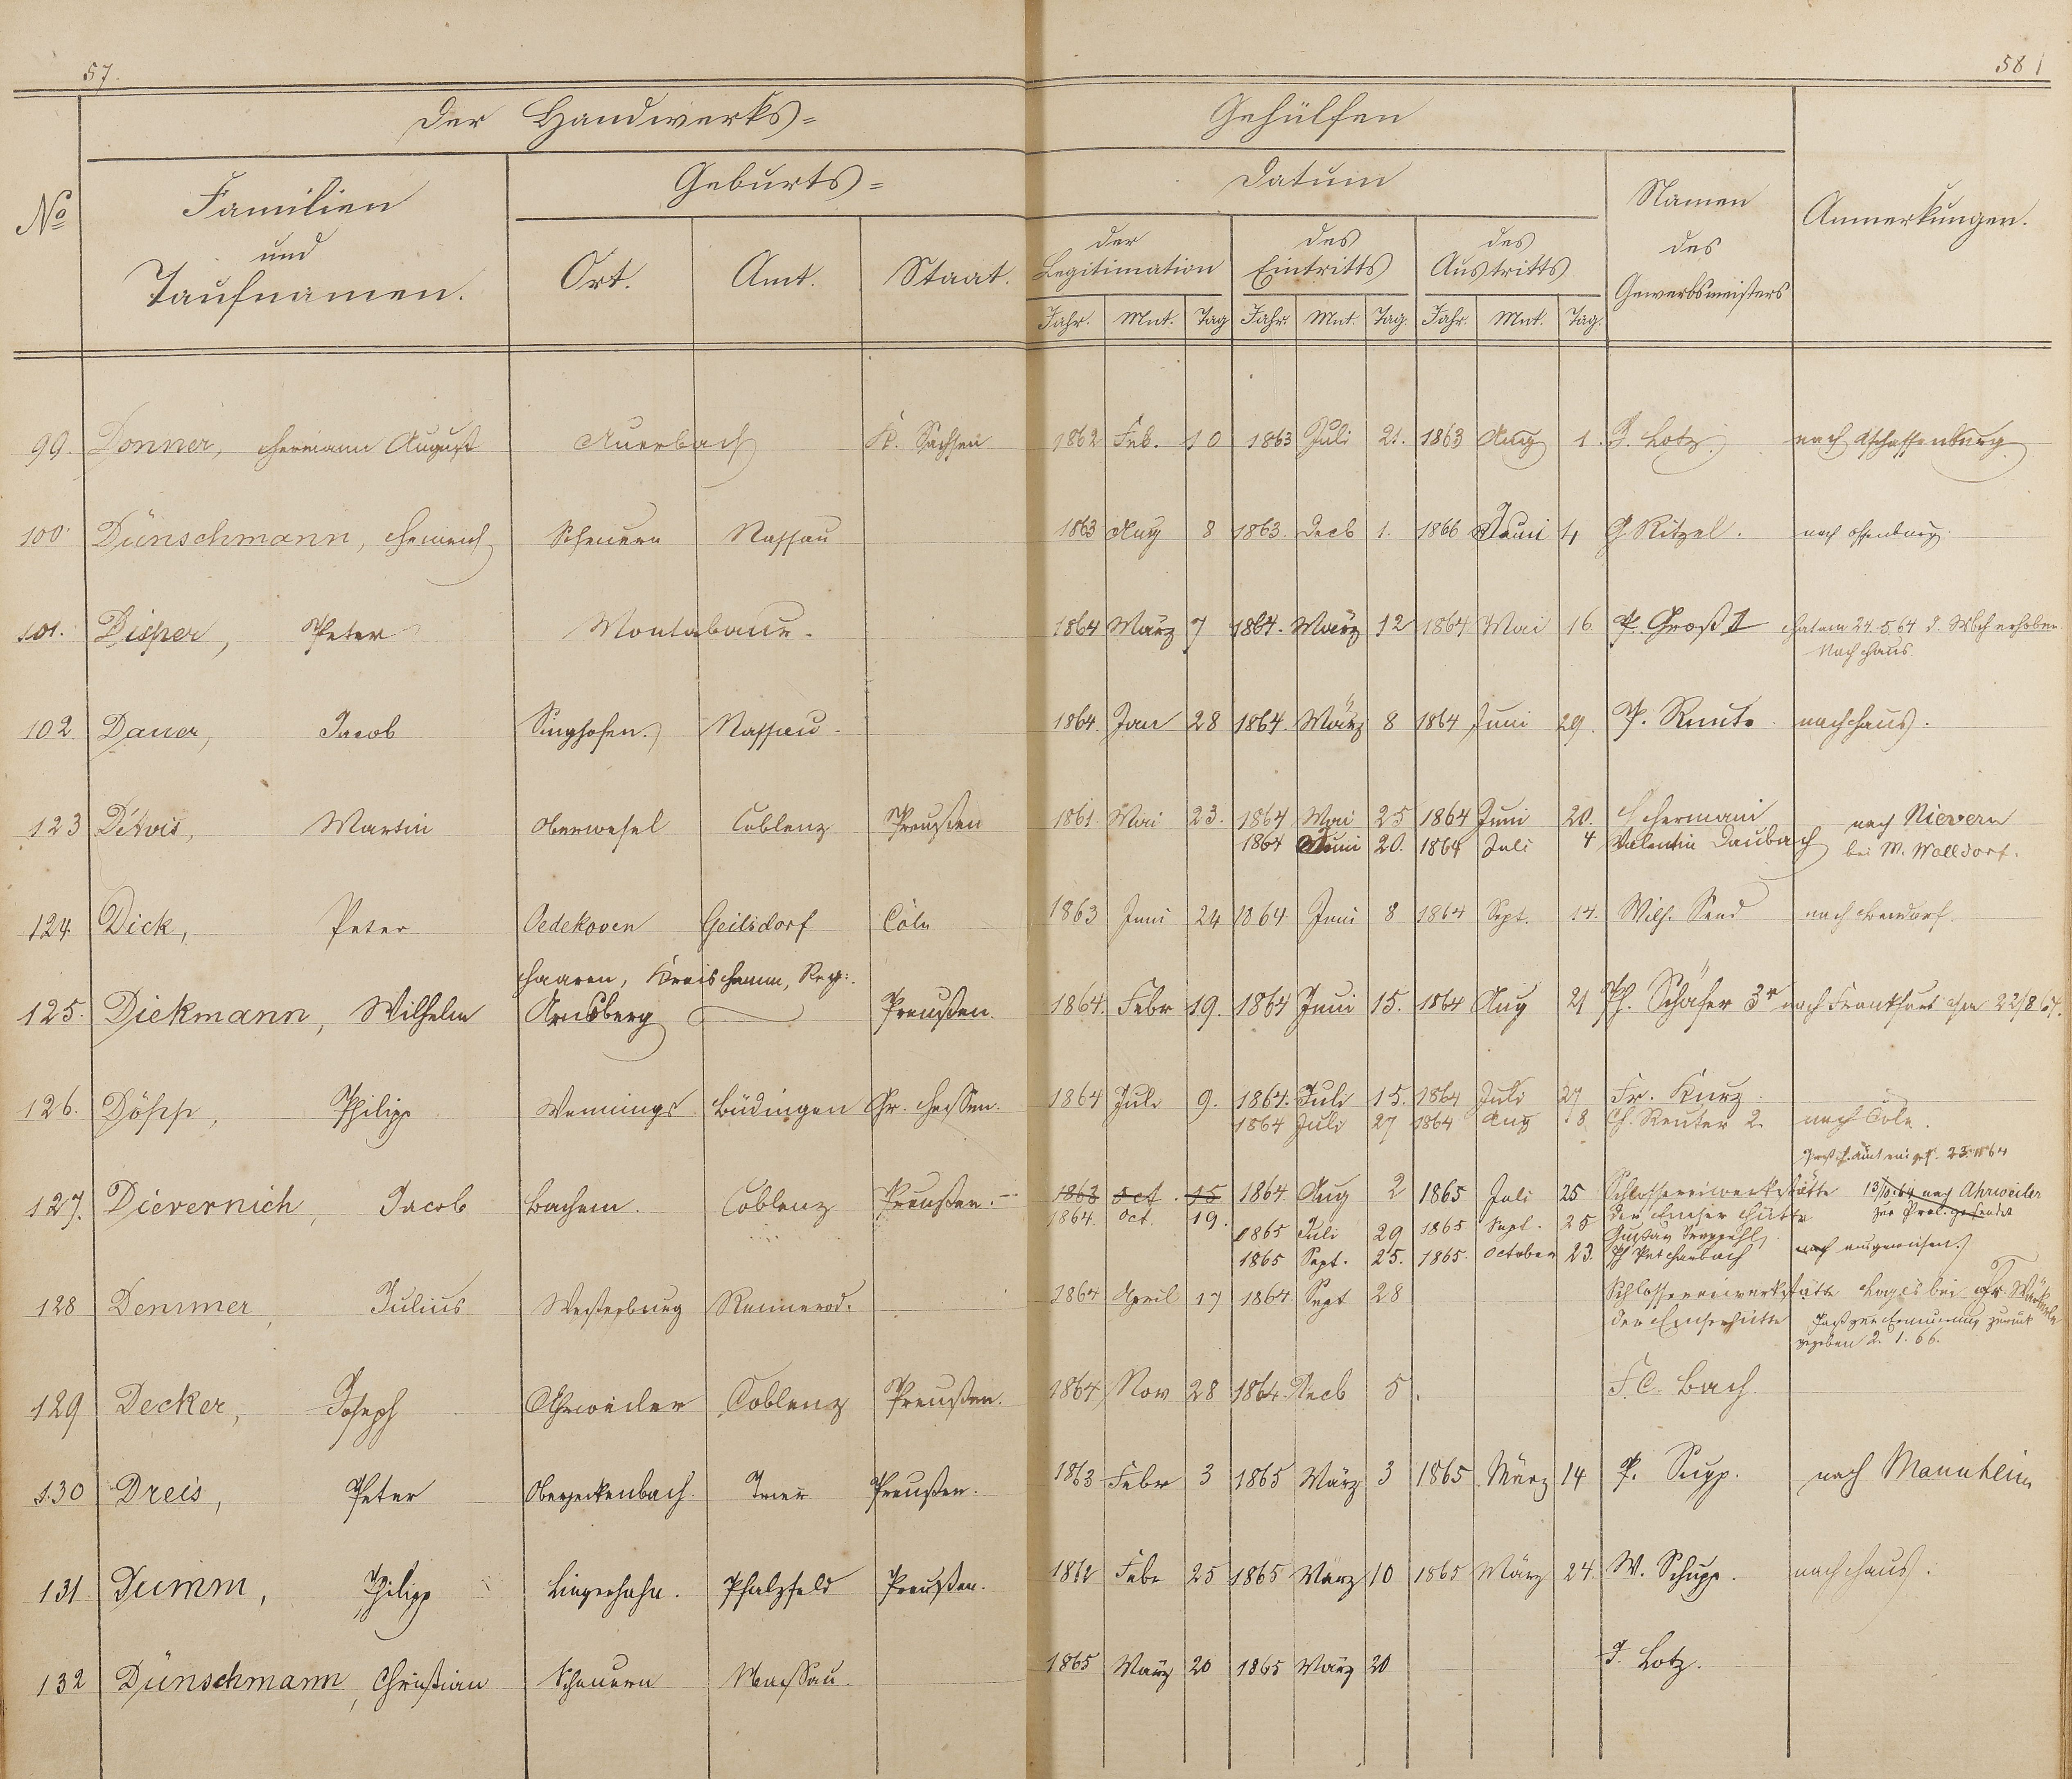 57.
58
Der Handwerks=
Gehülfen
No
Familien
und
Taufnamen.
Geburts=
Ort.
Amt.
Staat.
Datum
der
Legitimation
des
Eintritts
des
Austritts
Jahr. Mnt. Tag Jahr. Mnt. Tag. Jahr. Mnt. Tag.
Namen
des
Gewerbsmeisters
Anmerkungen.
99. Donner, Hermann August Auerbach K. Sachsen 1862 Feb. 10 1863 Juli 21. 1863 Aug 1. J. Lotz. nach Aschaffenburg
100. Dünschmann, Heinrich Scheuern Nassau 1863 Aug 8 1863. Decb 1. 1866 Juni 4 G Ritzel. nach Offenburg.
101. Disper, Peter Montabaur. 1864 März 7 1864. März 12 1864 Mai 16. P. Groß 1 Hat am 24.5.64 d. Wbch erhoben.
Nach Haus.
102 Dauer, Jacob Singhofen. Nassau. 1864. Jan 28 1864. März 8 1864 Juni 29. P. nach Haus.
123 Martin Oberwesel Coblenz Preußen 1861. Mai 23. 1864 Mai 25 1864 Juni 20. Hermani nach Nievern
1864 Juni 20. 1864 Juli 4 Valentin Daubach bei M. Walldorf.
124. Dick, Peter Oedekoven Geilsdorf Cöln 1863 Juni 24 1864 Juni 8 1864 Sept. 14. Wilh. Send nach Bendorf.
Haaren, Kreis Hamm, Reg:
125. Diekmann, Wilhelm Arnsberg Preußen. 1864. Febr 19. 1864 Juni 15. 1864 Aug 21 Ph. Schäfer 3r nach Frankfurt a/m 22/8 64.
126. Döpp, Philipp Wennings Büdingen Gr. Hessen. 1864 Juli 9. 1864. Juli 15. 1864 Juli 27 Fr. Kurz.
1864 Juli 27 1864 Aug 8 Ph. Reuter 2. nach Cöln.
23. 11 64
127. Dievernich, Jacob Bachem. Coblenz Preußen. 1863 Oct. 15 1864. Aug 2 1865 Juli 25 Schlossereiwerkstätte 13/10.64 nach Ahrweiler
1864. Oct. 19. der Emser Hütte zur Prol. gesendet
1865 Juli 29 1865 Sept. 25 Gustav
1865 Sept. 25. 1865. October 23. Ph nach ausgewiesen.
128 Denimer, Julius Westerburg Rennerod. 1864 April 17 1864. Sept 28 Schlossereiwerkstätte Logis bei Fr.
der Emserhütte Paß zur Erneuerung zurück
gegeben 2. 1. 66.
129 Decker, Joseph Ahrweiler Coblenz Preußen. 1864 Nov 28 1864. Decb 5. F. C. Bach.
130 Dreis, Peter Oberjeckenbach. Trier Preußen. 1863 Febr 3 1865 März 3 1865 März 14 P. Supp. nach Mannheim
131 Dumm, Philipp Lingerhahn. Pfalzfeld Preußen. 1862 Febr 25 1865 März 10 1865 März 24. W. Schupp. nach Haus.
132 Dünschmann, Christian Scheuern Nassau. 1865 März 20 1865 März 20 J. Lotz.